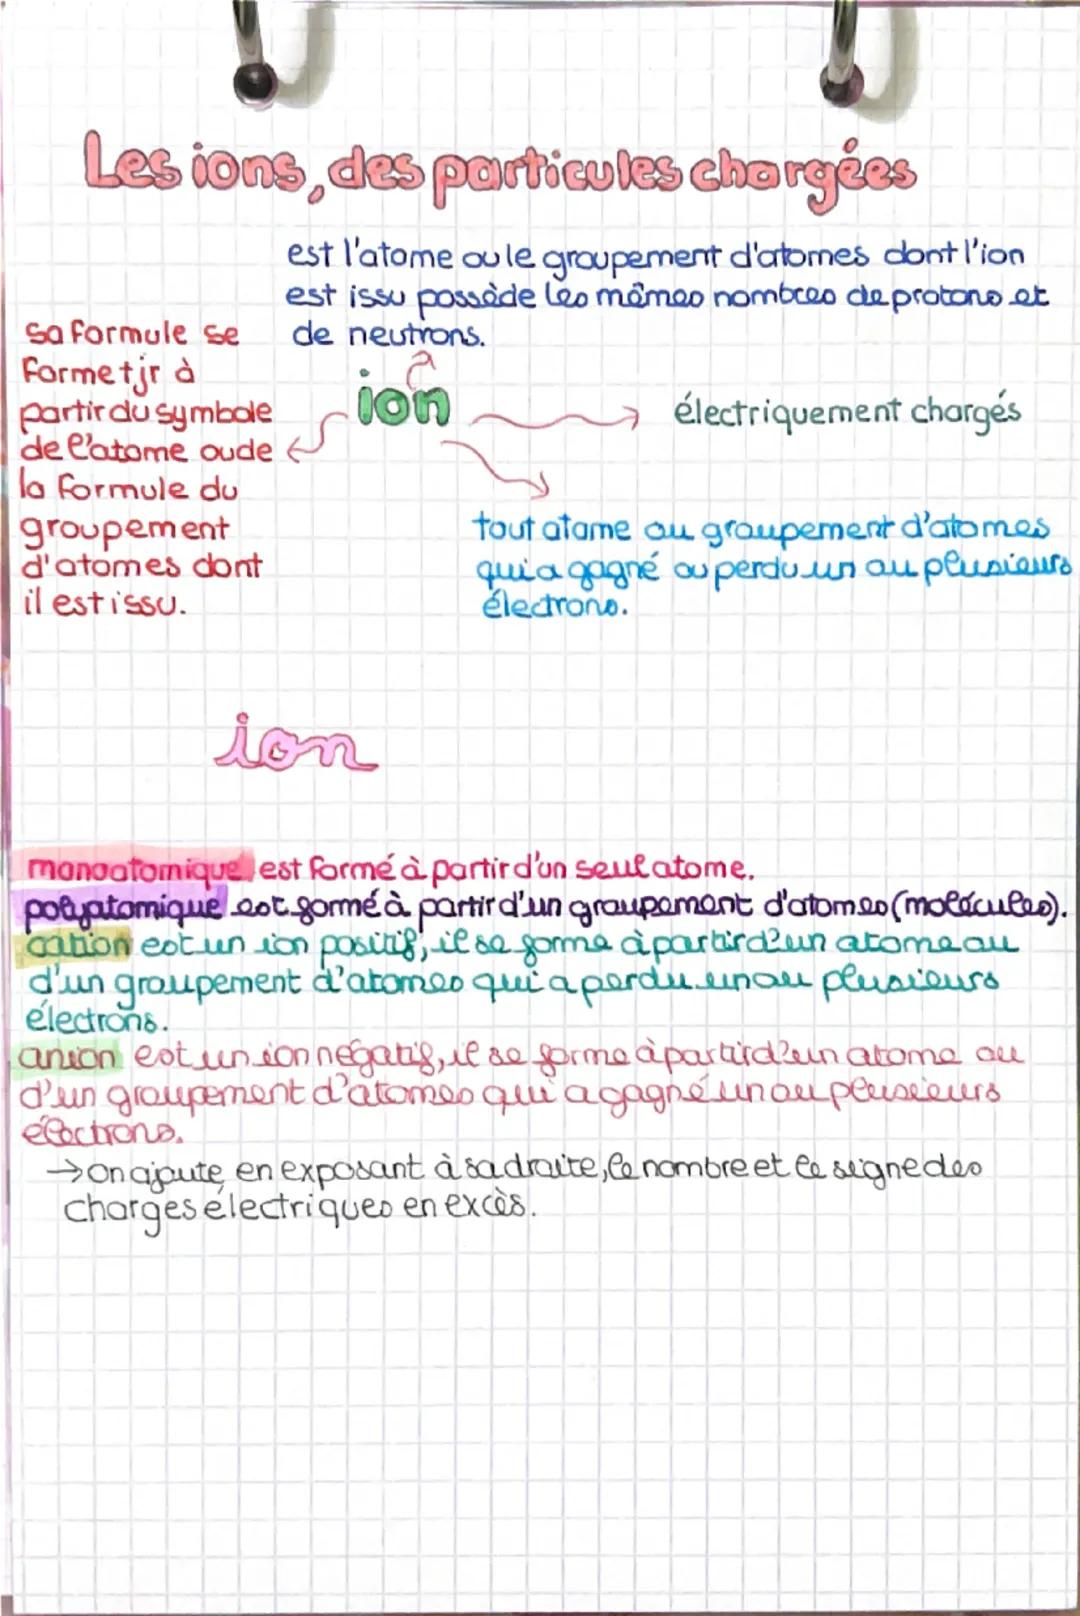 Les ions, des particules chargées
est l'atome ou le groupement d'atomes dont l'ion
est issu possède les mêmes nombres de protons et
de neutrons.
sa formule se
forme tjr à
partir du symbole
de l'atome ou de
la formule du
groupement
d'atomes dont
il est issu.
ion
électriquement chargés
tout atome ou groupement d'atomes
qui a gagné ou perdu un ou plusieurs
électrons.
ion
monoatomique est formé à partir d'un seul atome.
polyatomique est formé à partir d'un groupement d'atomes (molécules).
cation est un ion positif, il se forme à partir d'un atome ou
d'un groupement d'atomes qui a perdu un ou plusieurs
électrons.
anion est un ion négatif, il se forme à partir d'un atome ou
d'un groupement d'atomes qui a gagné un ou plusieurs
électrons.
→ on ajoute, en exposant à sa droite, le nombre et le signe des
charges électriques en excès.